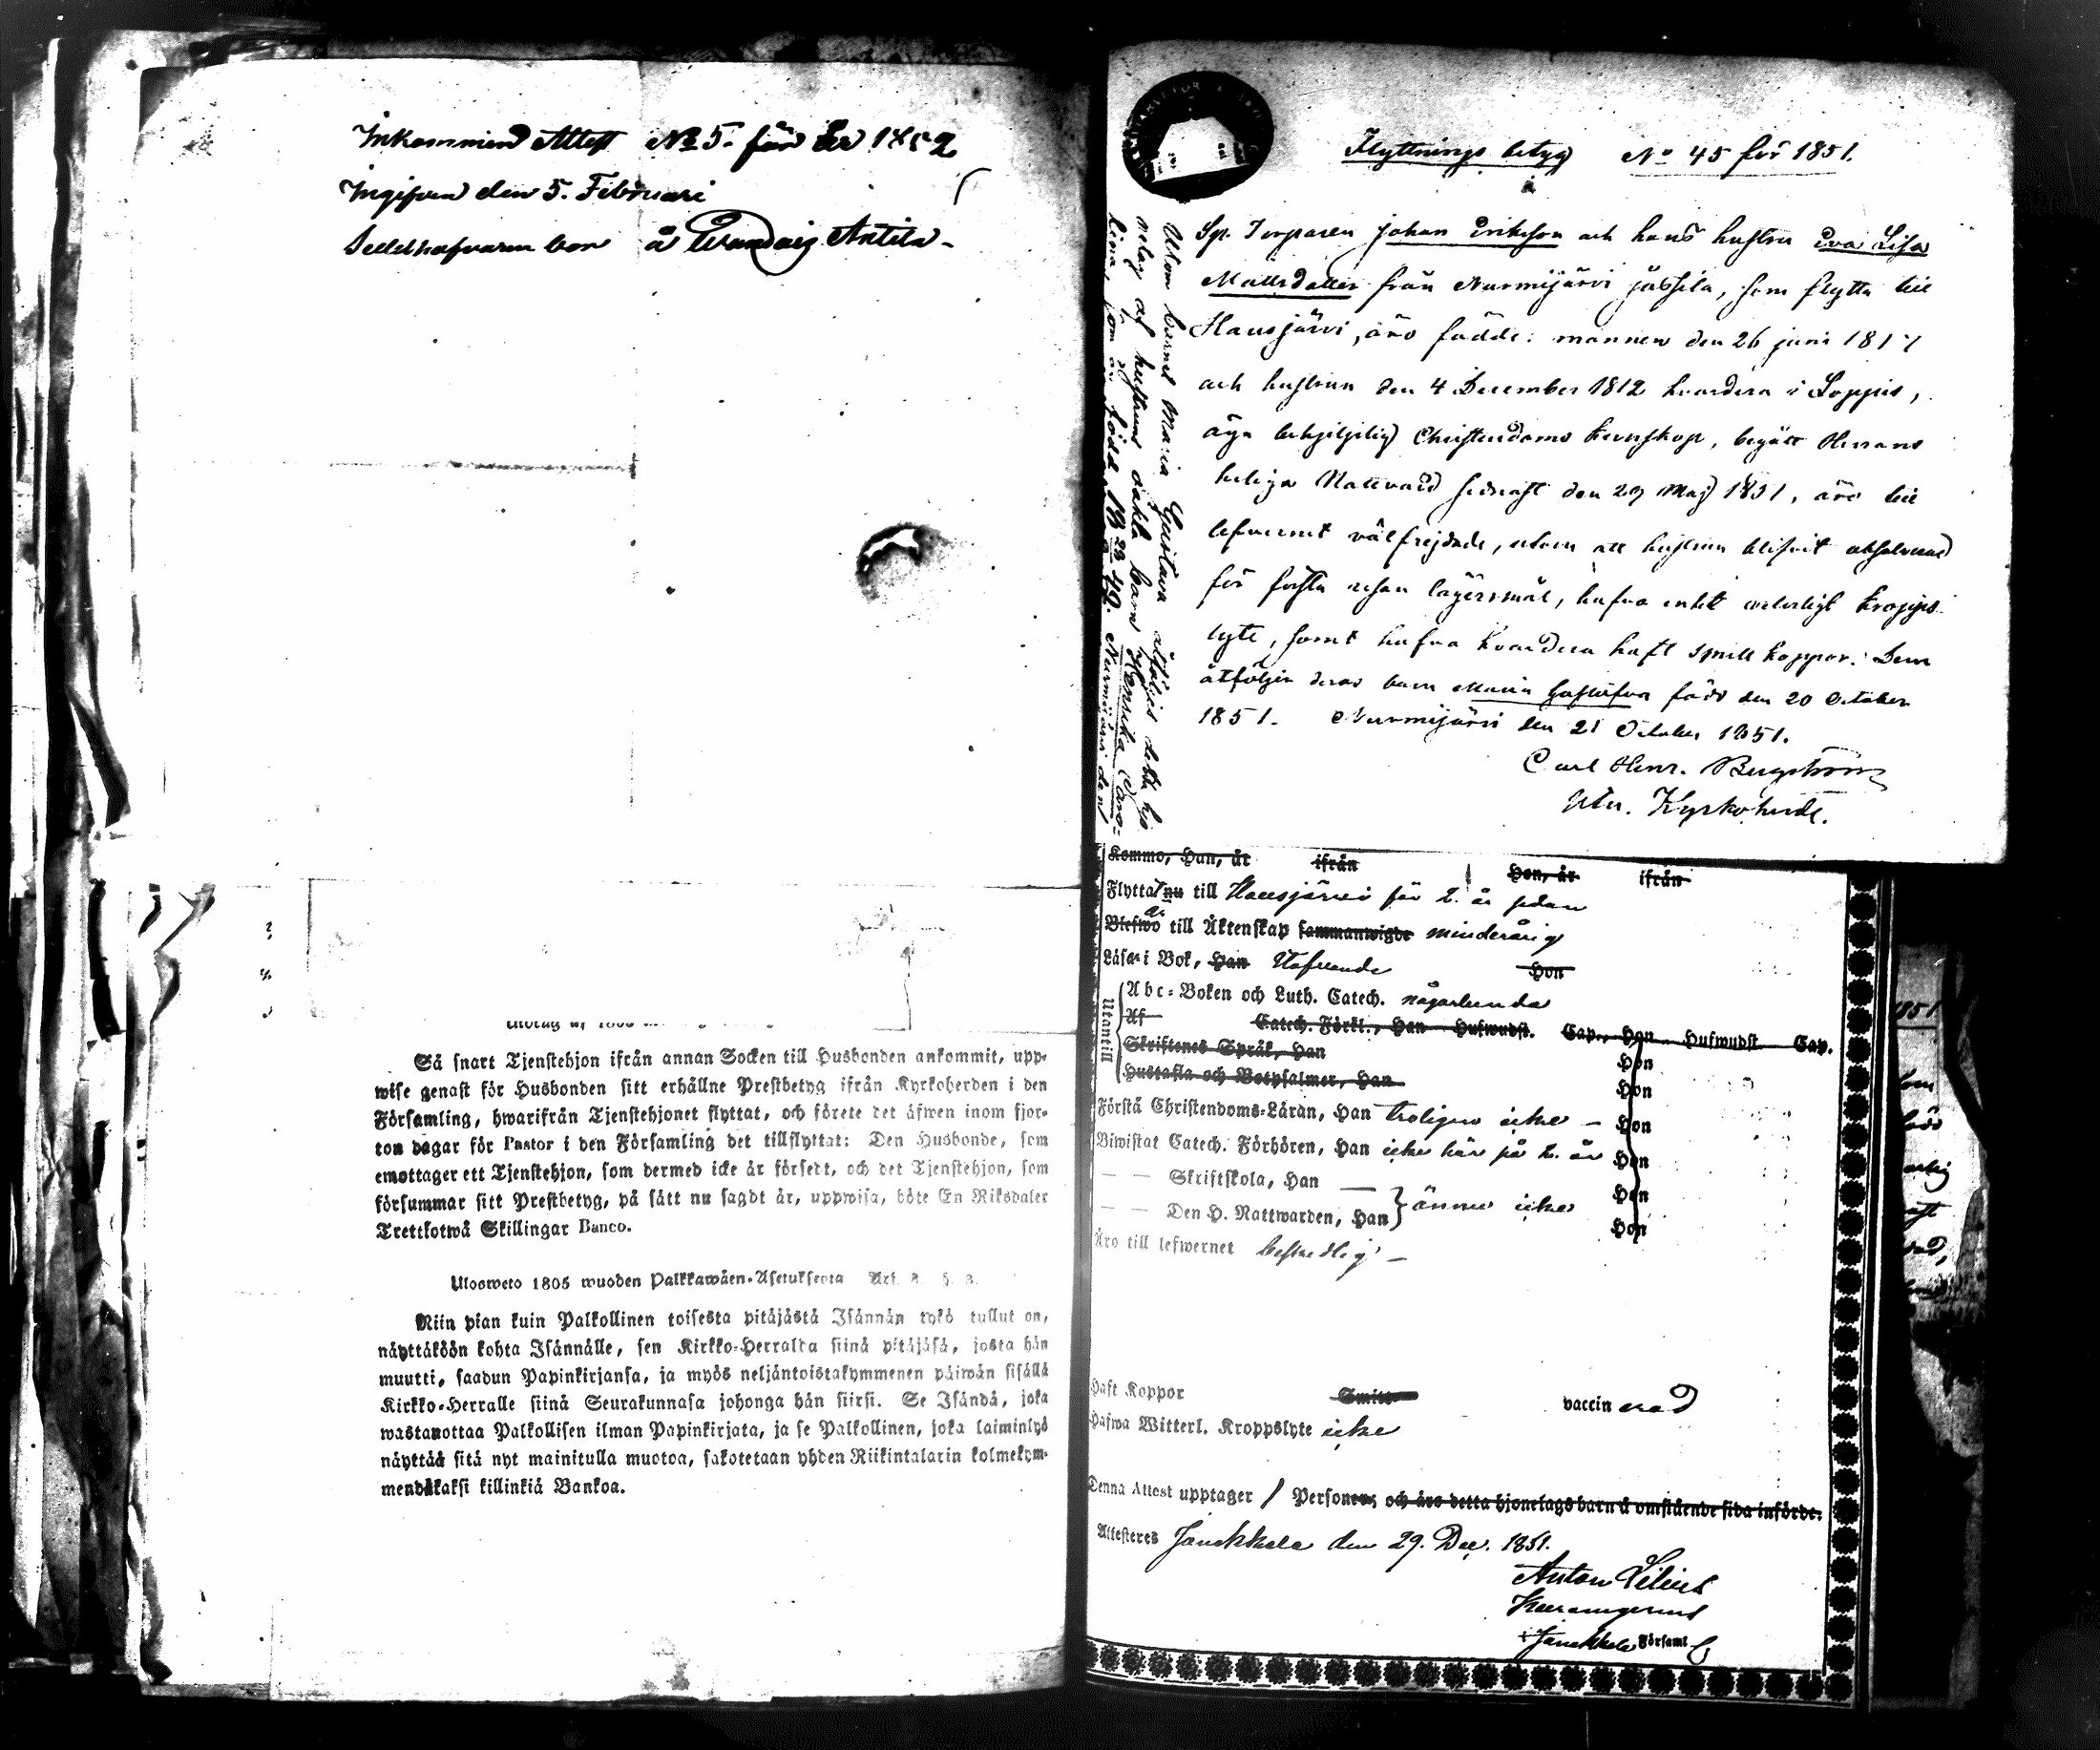 Inkommen Attest No 5. för År 1852
Ingifven den 5. Februari
å Antila
Så snart Tjenstehjon ifrån annan Socken till Husbonden ankommit, upp-
wise genast för Husbonden sitt erhållne Prestbetyg ifrån Kyrkoherden i den
Församling, hwarifrån Tjenstehjonet flyttat, och förete det äfwen inom fjor-
ton dagar för Pastor i den Församling det tillflyttat: Den Husbonde, som
emottager ett Tjenstehjon, som dermed icke är försedt, och det Tjenstehjon, som
försummar sitt Prestbetyg, på sätt nu sagdt är, uppwisa, böte En Riksdaler
Trettiotwå Skillingar Banco.
Ulosweto 1805 wuoden Palkkawäen-Asetuksesta Art. § 3.
Niin pian kuin Palkollinen toisesta pitäjästä Isännän tykö tullut on,
näyttäköön kohta Isännälle, sen Kirkko-Herralda siinä pitäjäsä, josta hän
muutti, saadun Papinkirjansa, ja myös neljäntoistakymmenen päiwän sisällä
Kirkko-Herralle siinä Seurakunnasa johonga hän siirsi. Se Isändä, joka
wastanottaa Palkollisen ilman Papinkirjata, ja se Palkollinen, joka laiminlyö
näyttää sitä nyt mainitulla muotoa, sakotetaan yhden Riikintalarin kolmekym-
mendäkaksi killinkiä Bankoa.
Flyttnings betyg No 45 för 1851.
Torparen Johan Erikson och hans hustru Eva Lisa
Mattsdotter från Nurmijärvi, som flytta till
Hausjärvi, äro födde: mannen den 26 juni 1817
och hustrun den 4 December 1812 hvardera i Loppis,
äga Christendoms kunskap, begått Herrans
heliga Nattvard sednast den 29 Maj 1851, äro till
lefvernet välfrejdade, utom att hustrun blifvit
för första resan lägersmål, hafva intet kropps-
lyte, samt hafva hvardera haft koppor. Dem
åtföljer deras barn Maria Gustafva född den 20 October
1851. Nurmijärvi den 21 October 1851.
Carl Henr. Bergström
Kyrkoherde.
Utom barnet Maria Gustava åtföljes detta hjo
nelag af hustruns oäkta barn Henrika Caro-
lina, som är född Nurmijärvi
Kommo, Han, år ifrån Hon, år ifrån
Flyttat nu till Hausjärvi för 2. år sedan
Blefwo till Äktenskap sammanwigde minderårig
Läsa i Bok, Han Hon
Utantill
Abc-Boken och Luth. Catech. någorlunda
Af Catech. Förkl., Han Hufwudst. Cap., Hon Hufwudst. Cap.
Skriftenes Språk, Han Hon
Hustafla och Botpsalmer, Han Hon
Förstå Christendoms-Läran, Han troligen icke – Hon
Biwistat Catech. Förhören, Han icke här på 2. år Hon
— — Skriftskola, Han — Hon
— — Den H. Nattwarden, Han ännu icke Hon
Äro till lefwernet beskedlig –
Haft Koppor Smitt vaccinerad
Hafwa Witterl. Kroppslyte icke
Denna Attest upptager 1 Personer; och äro detta hjonelags barn å omstående sida införde.
Attesteres Janakkala den 29. Dec. 1851.
Anton
Janakkala Församl